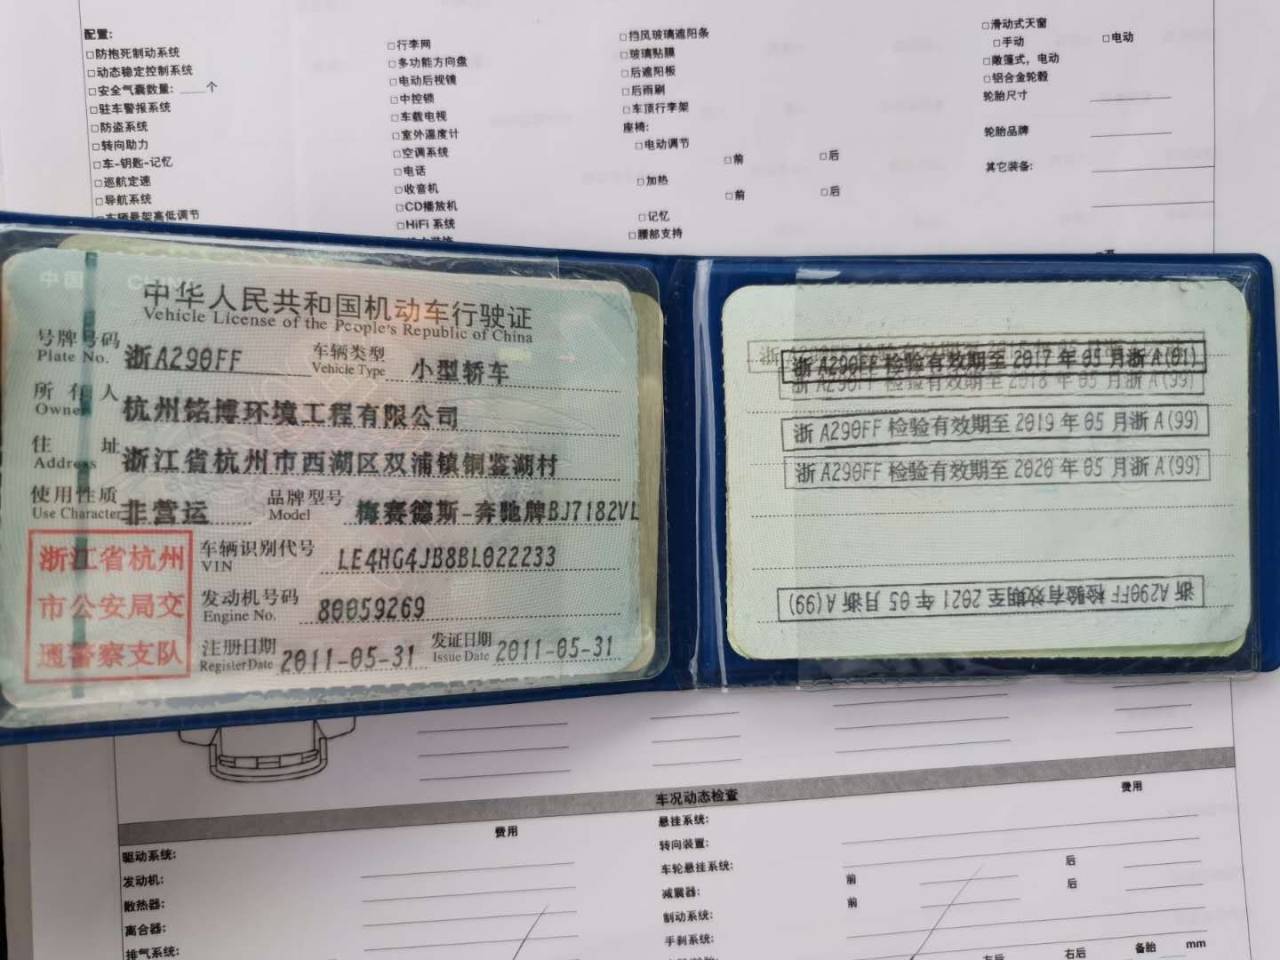 配置:
□防抱死制动系统
□动态稳定控制系统
□安全气囊数量: 个
□驻车警报系统
□防盗系统
□转向助力
□车-钥匙-记忆
□巡航定速
□导航系统
□车辆悬架高低调节
□行李网
□多功能方向盘
□电动后视镜
□中控锁
□车载电视
□室外温度计
□空调系统
□电话
□收音机
□CD播放机
□HiFi 系统
□挡风玻璃遮阳条
□玻璃贴膜
□后遮阳板
□后雨刷
□车顶行李架
座椅:
□电动调节
□前 □后
□加热
□前 □后
□记忆
□腰部支持
□滑动式天窗
□手动 □电动
□敞篷式，电动
□铝合金轮毂
轮胎尺寸
轮胎品牌
其它装备:
中国 CHINA
中华人民共和国机动车行驶证
Vehicle License of the People's Republic of China
号牌号码 浙A290FF 车辆类型 小型轿车
Plate No. Vehicle Type
所有人 杭州铭博环境工程有限公司
Owner
住址 浙江省杭州市西湖区双浦镇铜鉴湖村
Address
使用性质 非营运 品牌型号 梅赛德斯-奔驰牌BJ7182VL
Use Character Model
浙江省杭州
市公安局交
通警察支队
车辆识别代号 LE4HG4JB8BL022233
VIN
发动机号码 80059269
Engine No.
注册日期 2011-05-31 发证日期 2011-05-31
Register Date Issue Date
浙A290FF 检验有效期至 2017 年 05 月浙A(01)
浙A290FF 检验有效期至 2018 年 05 月浙A(99)
浙A290FF 检验有效期至 2019 年 05 月浙A(99)
浙A290FF 检验有效期至 2020 年 05 月浙A(99)
浙A290FF 检验有效期至 2021 年 05 月浙A(99)
车况动态检查
费用 费用
驱动系统:
发动机:
散热器:
离合器:
排气系统:
悬挂系统:
转向装置:
车轮悬挂系统: 后
减震器: 前 后
制动系统: 前
手刹系统:
左后 右后 备胎 mm